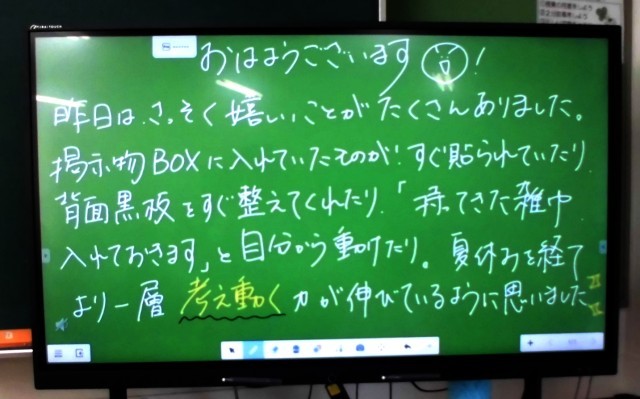 おはようございます!
昨日は、さっそく嬉しいことがたくさんありました。
掲示物BOXに入れていたものが、すぐ貼られていたり
背面黒板をすぐ整えてくれたり、「持ってきた雑巾
入れておきます」と自分から動けたり。夏休みを経て
より一層 考え動く 力が伸びているように思いました